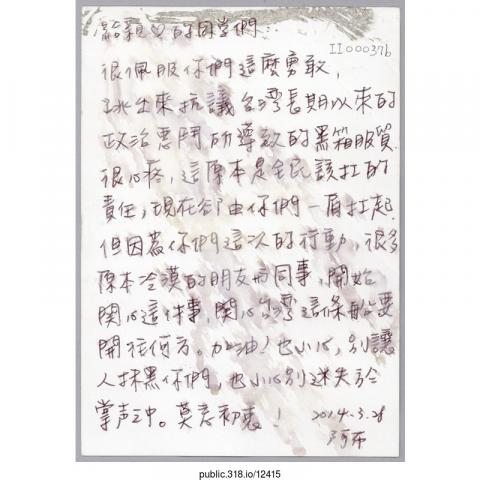 給親愛的同學們：
II00037b
很佩服你們這麼勇敢，
跳出來抗議台灣長期以來的
政治惡鬥所導致的黑箱服貿.
很心疼，這原本是全民該扛的
責任，現在卻由你們一肩扛起.
但因為你們這次的行動，很多
原本冷漠的朋友和同事，開始
関心這件事，関心台灣這条船要
開往何方。加油！也小心，別讓
人抹黑你們，也小心別迷失於
掌声中。莫忘初衷！ 2014.3.28
阿布
public.318.io/12415